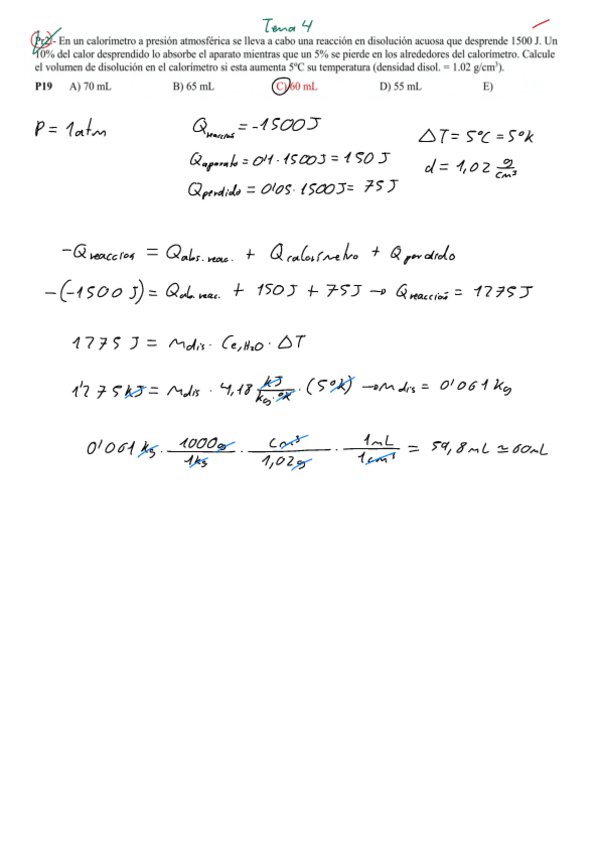 Tema 4
Pr2.- En un calorímetro a presión atmosférica se lleva a cabo una reacción en disolución acuosa que desprende 1500 J. Un
10% del calor desprendido lo absorbe el aparato mientras que un 5% se pierde en los alrededores del calorímetro. Calcule
el volumen de disolución en el calorímetro si esta aumenta 5ºC su temperatura (densidad disol. = 1.02 g/cm³).
P19 A) 70 mL B) 65 mL C) 60 mL D) 55 mL E)
P = 1atm Q reaccios = -1500J ΔT = 5ºC = 5ºK
Q aparato = 0'1 · 1500J = 150 J d = 1,02 g/cm³
Q perdido = 0'05 · 1500J = 75 J
-Q reaccios = Q abs. reac. + Q calorímetro + Q perdido
-(-1500 J) = Q ab. reac. + 150J + 75J → Q reacciós = 1275J
1275 J = m dis · Ce, H₂O · ΔT
1'275 kJ = m dis · 4,18 kJ/kg·ºK · (5ºK) → m dis = 0'061 kg
0'061 kg · 1000g/1kg · cm³/1,02g · 1mL/1cm³ = 59,8mL ≃ 60mL